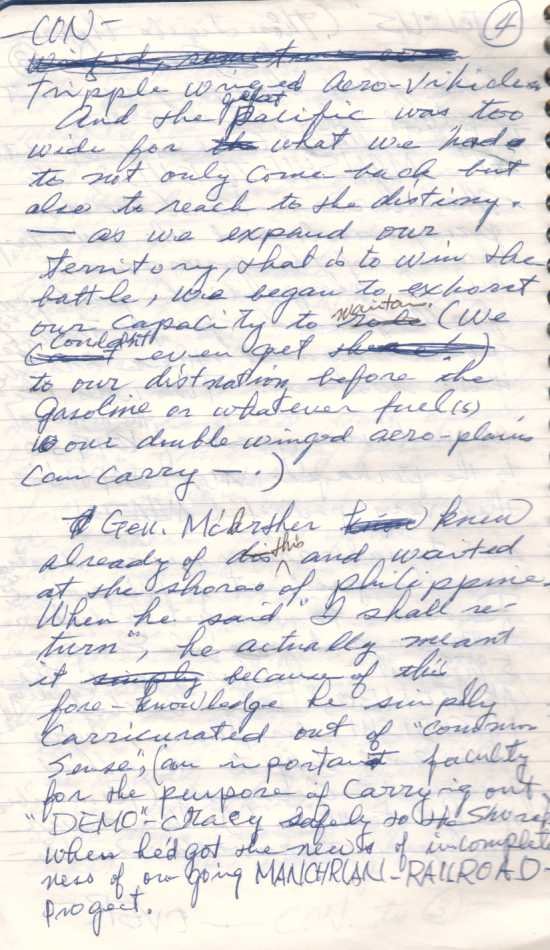 -CON-
4
winged,
Tripple winged Aero-Vihicles
And the great Pacific was too
wide for what we had
to not only come back but
also to reach to the distiny.
— as we expand our
territory, that is to win the
battle, we began to exhorst
our capacity to maintain. (We
couldn't even get
to our distnation before the
gasoline or whatever fuel(s)
our double winged aero-plains
can carry — .)
Gen. McArsher knew
already of this and waited
at the shores of philippine.
When he said "I shall re-
turn", he actually meant
it simply because of this
fore-knowledge he simply
Carricurated out of "common
sense", (an inportant faculty
for the purpose of Carrying out
"DEMO"-cracy safely to the shore)
when he'd got the news of incomplete
ness of on going MANCHRIAN-RAILROAD-
Progect.